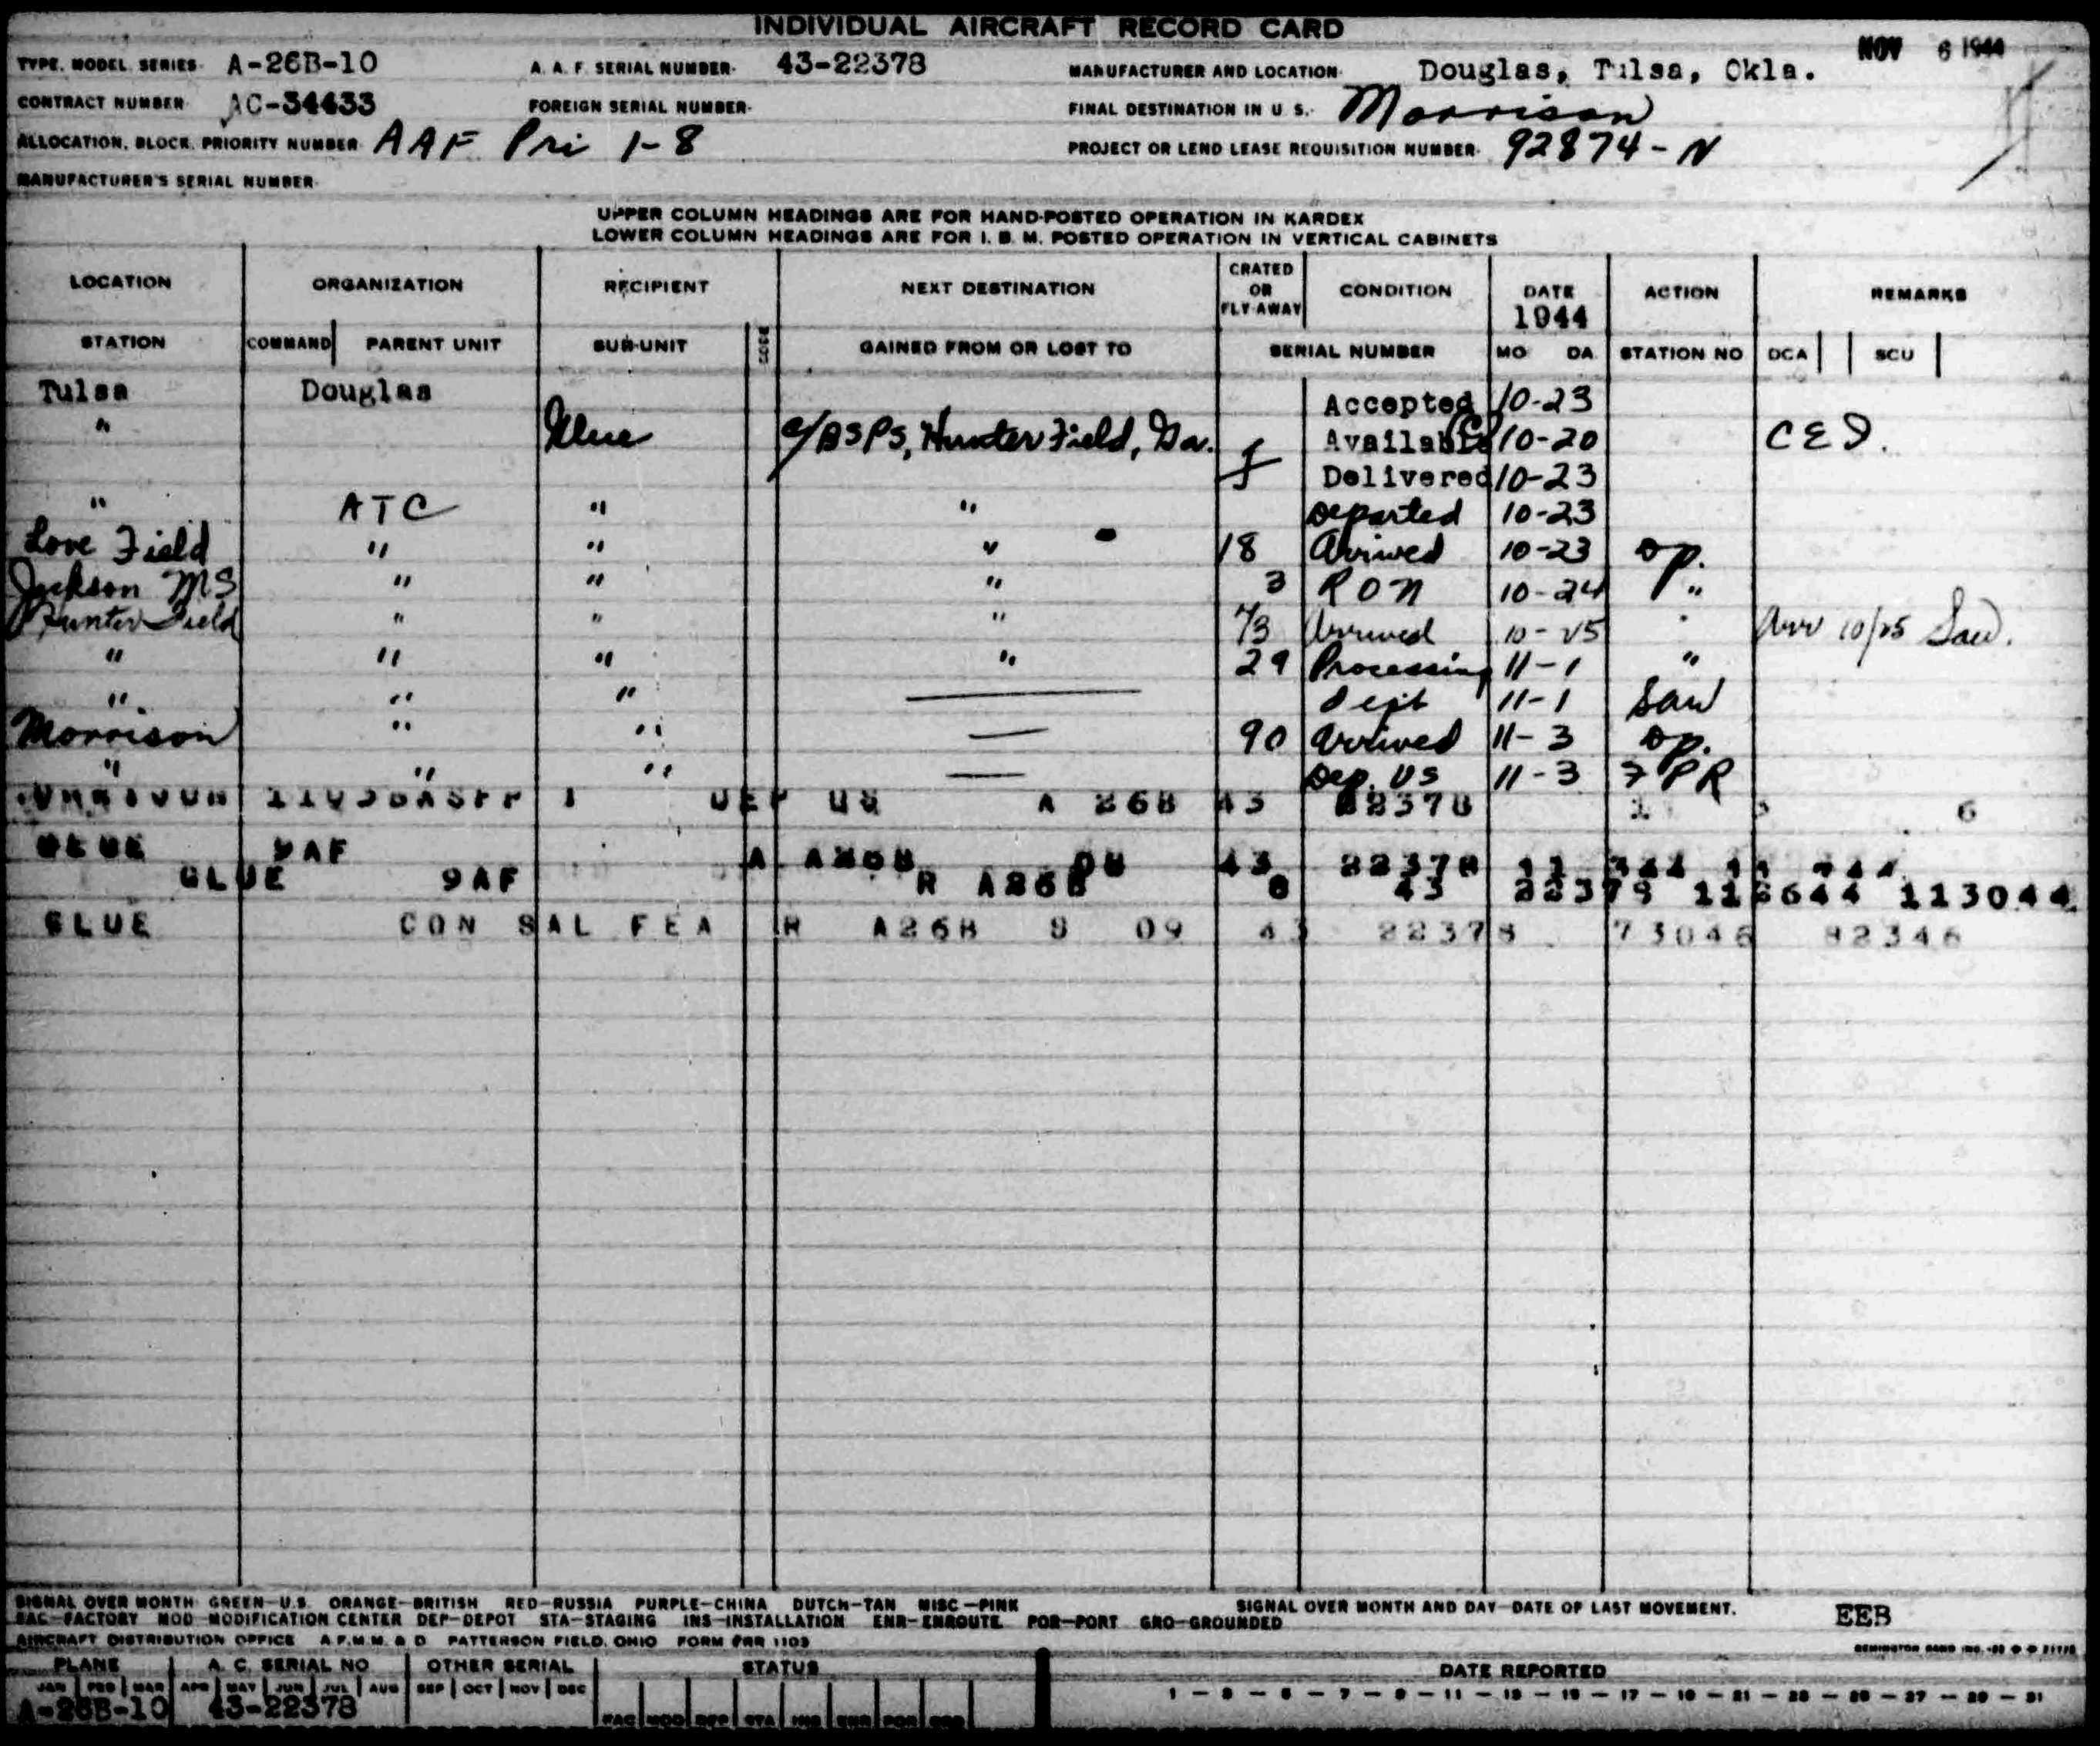 INDIVIDUAL AIRCRAFT RECORD CARD
NOV 6 1944
TYPE, MODEL, SERIES A-26B-10 A. A. F. SERIAL NUMBER 43-22378 MANUFACTURER AND LOCATION Douglas, Tulsa, Okla.
CONTRACT NUMBER AC-34433 FOREIGN SERIAL NUMBER FINAL DESTINATION IN U S. Morrison
ALLOCATION, BLOCK, PRIORITY NUMBER AAF Pri 1-8 PROJECT OR LEND LEASE REQUISITION NUMBER 92874-N
MANUFACTURER'S SERIAL NUMBER
UPPER COLUMN HEADINGS ARE FOR HAND-POSTED OPERATION IN KARDEX
LOWER COLUMN HEADINGS ARE FOR I. B. M. POSTED OPERATION IN VERTICAL CABINETS
LOCATION ORGANIZATION RECIPIENT NEXT DESTINATION CRATED OR FLY-AWAY CONDITION DATE 1944 ACTION REMARKS
STATION COMMAND PARENT UNIT SUB-UNIT CODE GAINED FROM OR LOST TO SERIAL NUMBER MO DA STATION NO DCA SCU
Tulsa Douglas Accepted 10-23
" Glue c/BSPS, Hunter Field, Ga. Available 10-20 C E D.
f Delivered 10-23
" ATC " " Departed 10-23
Love Field " " " 18 Arrived 10-23 op.
Jackson MS " " " 3 RON 10-24 "
Hunter Field " " " 73 Arrived 10-25 " Arr 10/25 Sav.
" " " " 29 Processing 11-1 "
" " " — dept 11-1 Sav
Morrison " " — 90 Arrived 11-3 op.
" " " — Dep. US 11-3 7 PR
DEP US A 26B 43 22378 6
GLUE 9AF A A26B 43 22378
GLUE 9AF R A26B 43
GLUE CON SAL FEA R A26B S 09 43 22378 73046 82346
SIGNAL OVER MONTH GREEN—U.S. ORANGE—BRITISH RED—RUSSIA PURPLE—CHINA DUTCH—TAN MISC—PINK SIGNAL OVER MONTH AND DAY—DATE OF LAST MOVEMENT.
FAC—FACTORY MOD—MODIFICATION CENTER DEP—DEPOT STA—STAGING INS—INSTALLATION ENR—ENROUTE POR—PORT GRO—GROUNDED EEB
AIRCRAFT DISTRIBUTION OFFICE A.F.M.M. & D. PATTERSON FIELD, OHIO FORM PRR 1103
PLANE A. C. SERIAL NO OTHER SERIAL STATUS DATE REPORTED
JAN FEB MAR APR MAY JUN JUL AUG SEP OCT NOV DEC 1 — 3 — 5 — 7 — 9 — 11 — 13 — 15 — 17 — 19 — 21 — 23 — 25 — 27 — 29 — 31
A-26B-10 43-22378 FAC MOD DEP STA INS ENR POR GRO